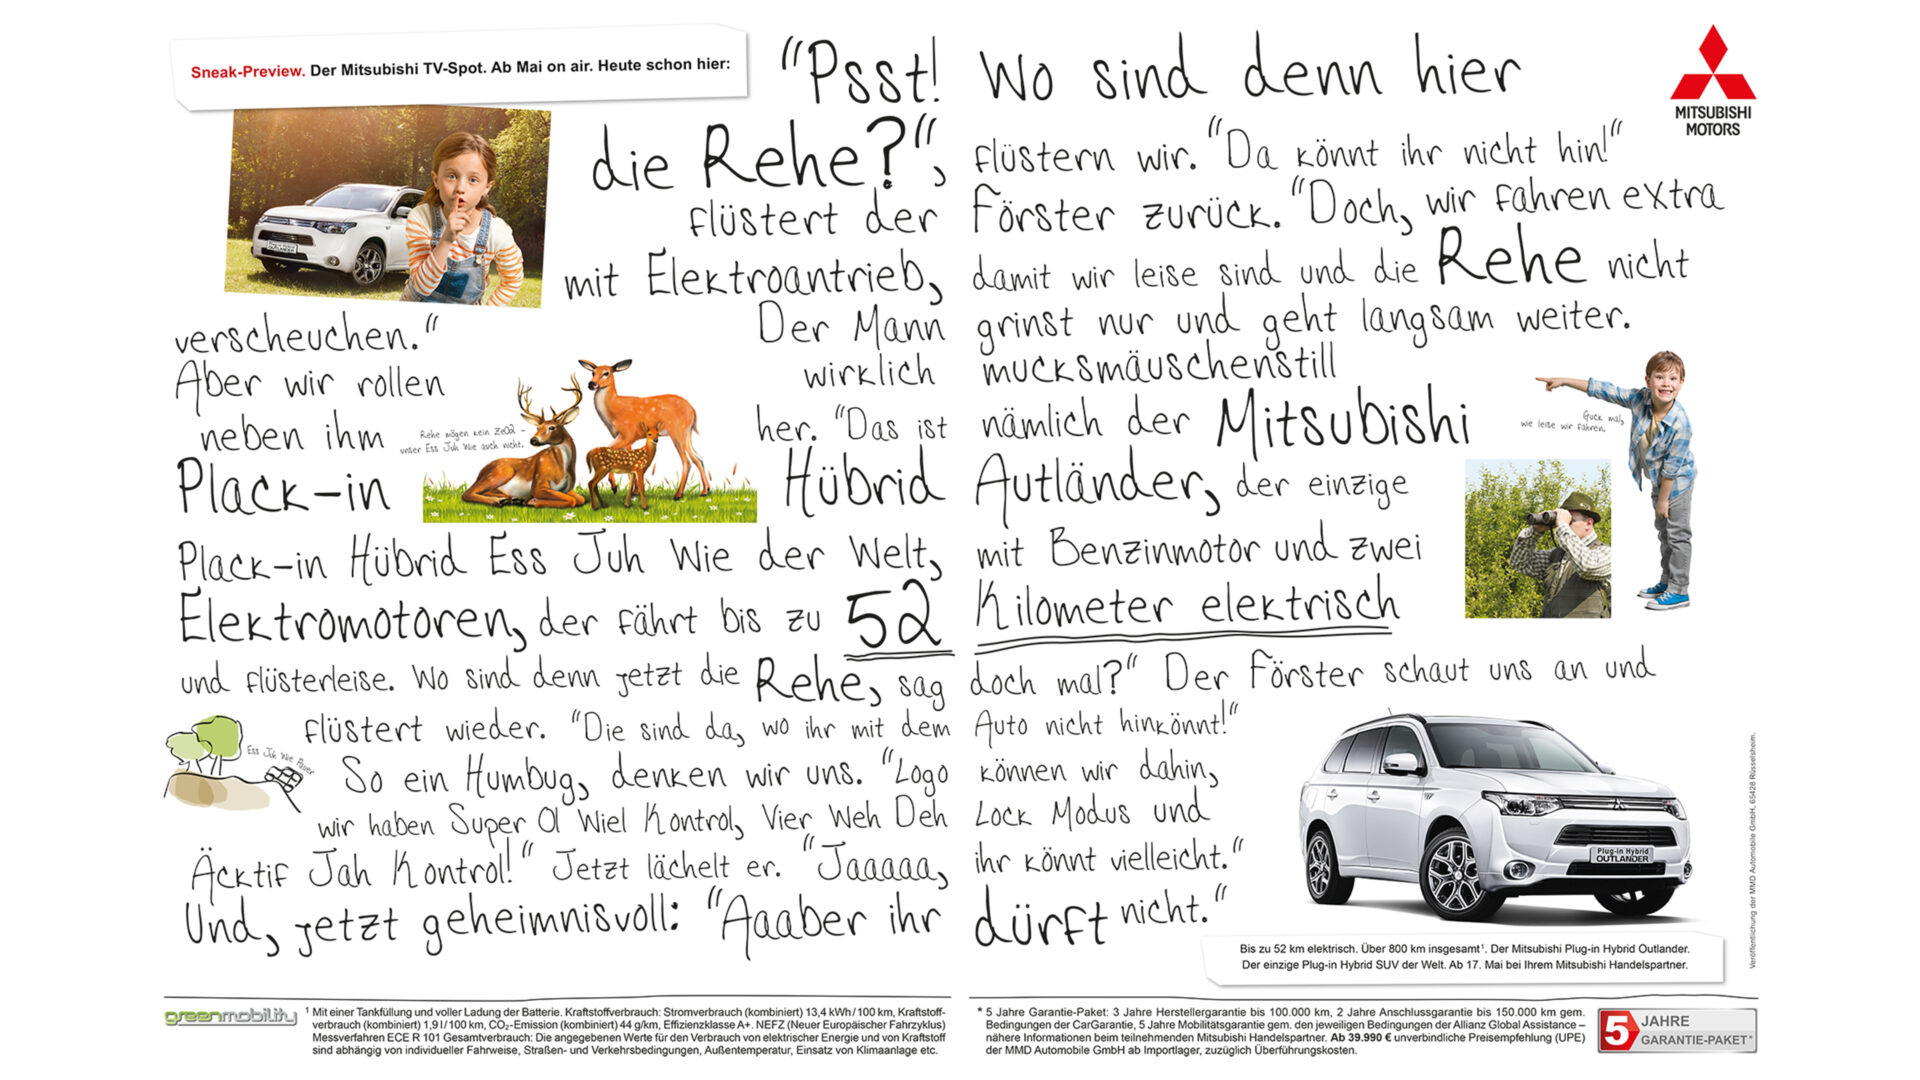 Sneak-Preview. Der Mitsubishi TV-Spot. Ab Mai on air. Heute schon hier:
“Psst! Wo sind denn hier
die Rehe?“, flüstern wir. “Da könnt ihr nicht hin!“
flüstert der Förster zurück. “Doch, wir fahren extra
mit Elektroantrieb, damit wir leise sind und die Rehe nicht
verscheuchen.“ Der Mann grinst nur und geht langsam weiter.
Aber wir rollen wirklich mucksmäuschenstill
neben ihm her. “Das ist nämlich der Mitsubishi
Plack-in Hübrid Autländer, der einzige
Plack-in Hübrid Ess Juh Wie der Welt, mit Benzinmotor und zwei
Elektromotoren, der fährt bis zu 52 Kilometer elektrisch
und flüsterleise. Wo sind denn jetzt die Rehe, sag doch mal?“ Der Förster schaut uns an und
flüstert wieder. “Die sind da, wo ihr mit dem Auto nicht hinkönnt!“
So ein Humbug, denken wir uns. “Logo können wir dahin,
wir haben Super Ol Wiel Kontrol, Vier Weh Deh Lock Modus und
Äcktif Jah Kontrol!“ Jetzt lächelt er. “Jaaaaa, ihr könnt vielleicht.“
Und, jetzt geheimnisvoll: “Aaaber ihr dürft nicht.“
MITSUBISHI
MOTORS
Plug-in Hybrid
OUTLANDER
Rehe mögen kein ZeO2 -
unser Ess Juh Wie auch nicht.
Guck mal,
wie leise wir fahren.
Ess Juh Wie Pauer
Plug-in Hybrid
OUTLANDER
Bis zu 52 km elektrisch. Über 800 km insgesamt¹. Der Mitsubishi Plug-in Hybrid Outlander.
Der einzige Plug-in Hybrid SUV der Welt. Ab 17. Mai bei Ihrem Mitsubishi Handelspartner.
Veröffentlichung der MMD Automobile GmbH, 65428 Rüsselsheim.
greenmobility
¹ Mit einer Tankfüllung und voller Ladung der Batterie. Kraftstoffverbrauch: Stromverbrauch (kombiniert) 13,4 kWh/100 km, Kraftstoff-
verbrauch (kombiniert) 1,9 l/100 km, CO₂-Emission (kombiniert) 44 g/km, Effizienzklasse A+. NEFZ (Neuer Europäischer Fahrzyklus)
Messverfahren ECE R 101 Gesamtverbrauch: Die angegebenen Werte für den Verbrauch von elektrischer Energie und von Kraftstoff
sind abhängig von individueller Fahrweise, Straßen- und Verkehrsbedingungen, Außentemperatur, Einsatz von Klimaanlage etc.
* 5 Jahre Garantie-Paket: 3 Jahre Herstellergarantie bis 100.000 km, 2 Jahre Anschlussgarantie bis 150.000 km gem.
Bedingungen der CarGarantie, 5 Jahre Mobilitätsgarantie gem. den jeweiligen Bedingungen der Allianz Global Assistance –
nähere Informationen beim teilnehmenden Mitsubishi Handelspartner. Ab 39.990 € unverbindliche Preisempfehlung (UPE)
der MMD Automobile GmbH ab Importlager, zuzüglich Überführungskosten.
5 JAHRE
GARANTIE-PAKET*